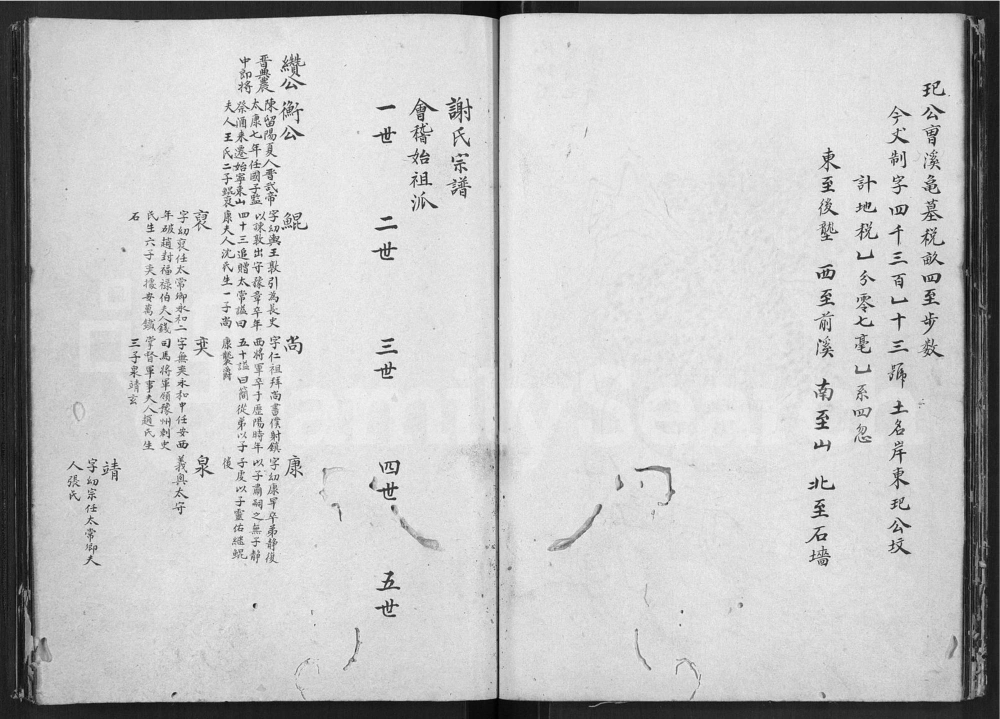 玘公曺溪亀墓税畝四至步数
今丈制字四千三百乚十三號 土名岸東玘公坟
計地税乚分零七毫乚系四忽
東至後塾 西至前溪 南至山 北至石墻
謝氏宗譜
會稽始祖派
一世 二世 三世 四世 五世
纘公
晉典農
中郎將
衡公
陳留陽夏人晋武帝
太康七年任國子監
祭酒来遷始寧東山
夫人王氏二子鯤裒
鯤
字幼輿王敦引為長史
以諫敦出守豫章卒年
四十三追贈太常謚曰
康夫人沈氏生一子尚
尚
字仁祖拜尚書僕射鎮
西將軍卒于歷陽時年
五十謚曰簡從弟以子
康襲爵
康
字幼康早卒弟静復
以子肅嗣之無子静
子虔以子靈佑繼鯤
後
裒
字幼裒任太常卿永和二
年破趙封福祿伯夫人錢
氏生六子奕據安萬鐵
石
奕
字無奕永和中任安西
司馬將軍領豫州刺史
掌督軍事夫人趙氏生
三子泉靖玄
泉
義興太守
靖
字幼宗任太常卿夫
人張氏